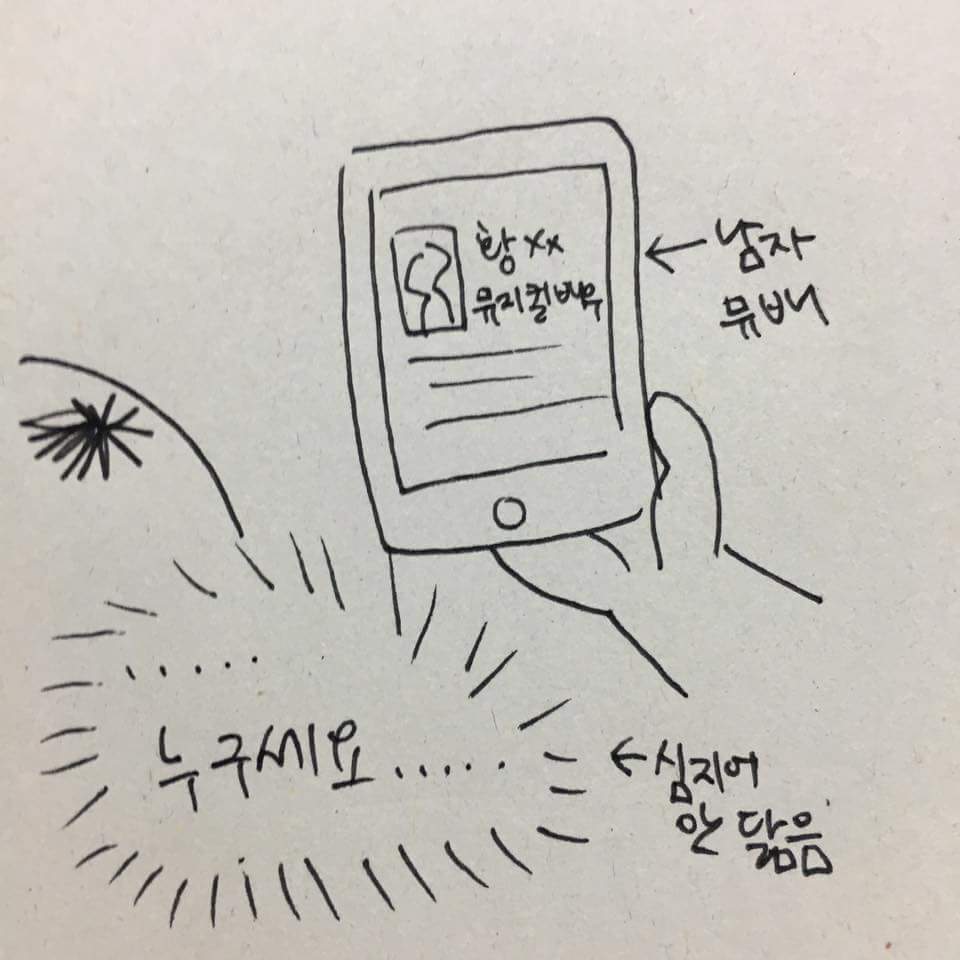 황 xx
뮤지컬배우
← 남자
뮤배
.....
누구세요.....
← 심지어
안 닮음